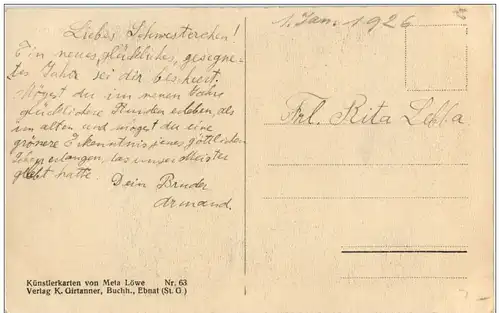 1. Jan. 1926
Liebes Schwesterchen!
Ein neues, glückliches, gesegne-
tes Jahr sei dir beschert.
Mögest du im neuen Jahr
glücklichere Stunden erleben, als
im alten und mögest du eine
grönere Erkenntnis jenes göttlichen
erlangen, das unser Meister
gelebt hatte. Dein Bruder
Armand.
Frl. Rita
Künstlerkarten von Meta Löwe Nr. 63
Verlag K. Girtanner, Buchh., Ebnat (St. G.)